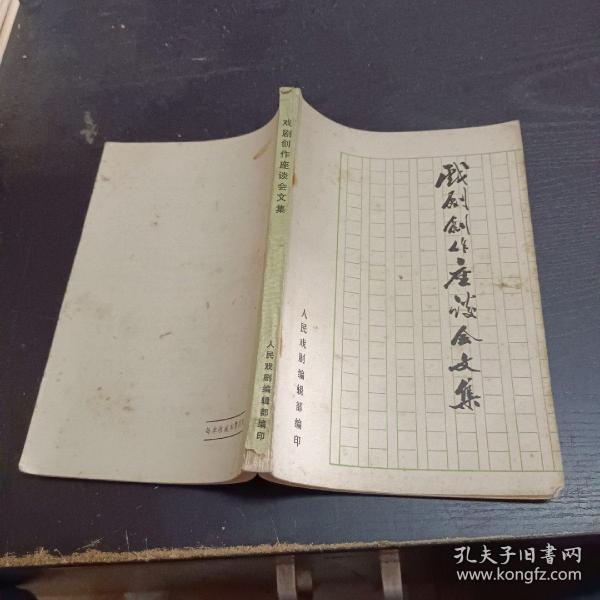 戏剧创作座谈会文集
人民戏剧编辑部编印
戏剧创作座谈会文集
人民戏剧编辑部编印
孔夫子旧书网
www.kongfz.com